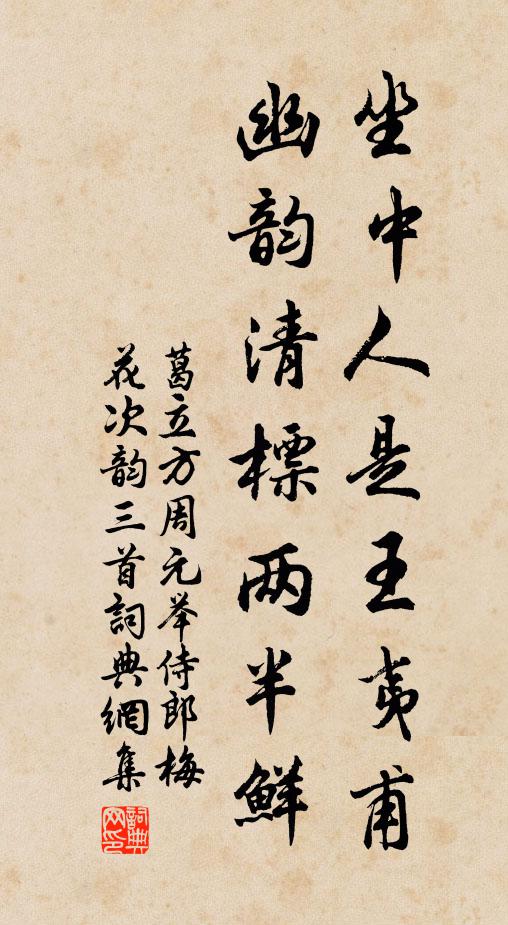 坐中人是王夷甫
幽韵清標两半鲜
葛立方周元举侍郎梅
花次韵三首詞典網集
詞典
网印